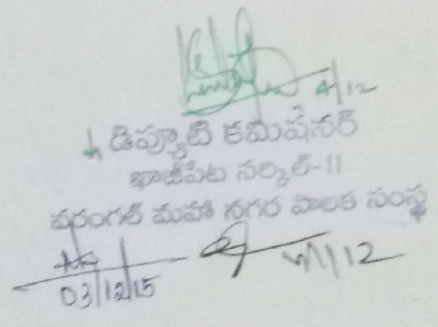 4/12
డిప్యూటి కమిషనర్
ఖాజీపేట సర్కిల్-II
వరంగల్ మహా నగర పాలక సంస్థ
03/12/15